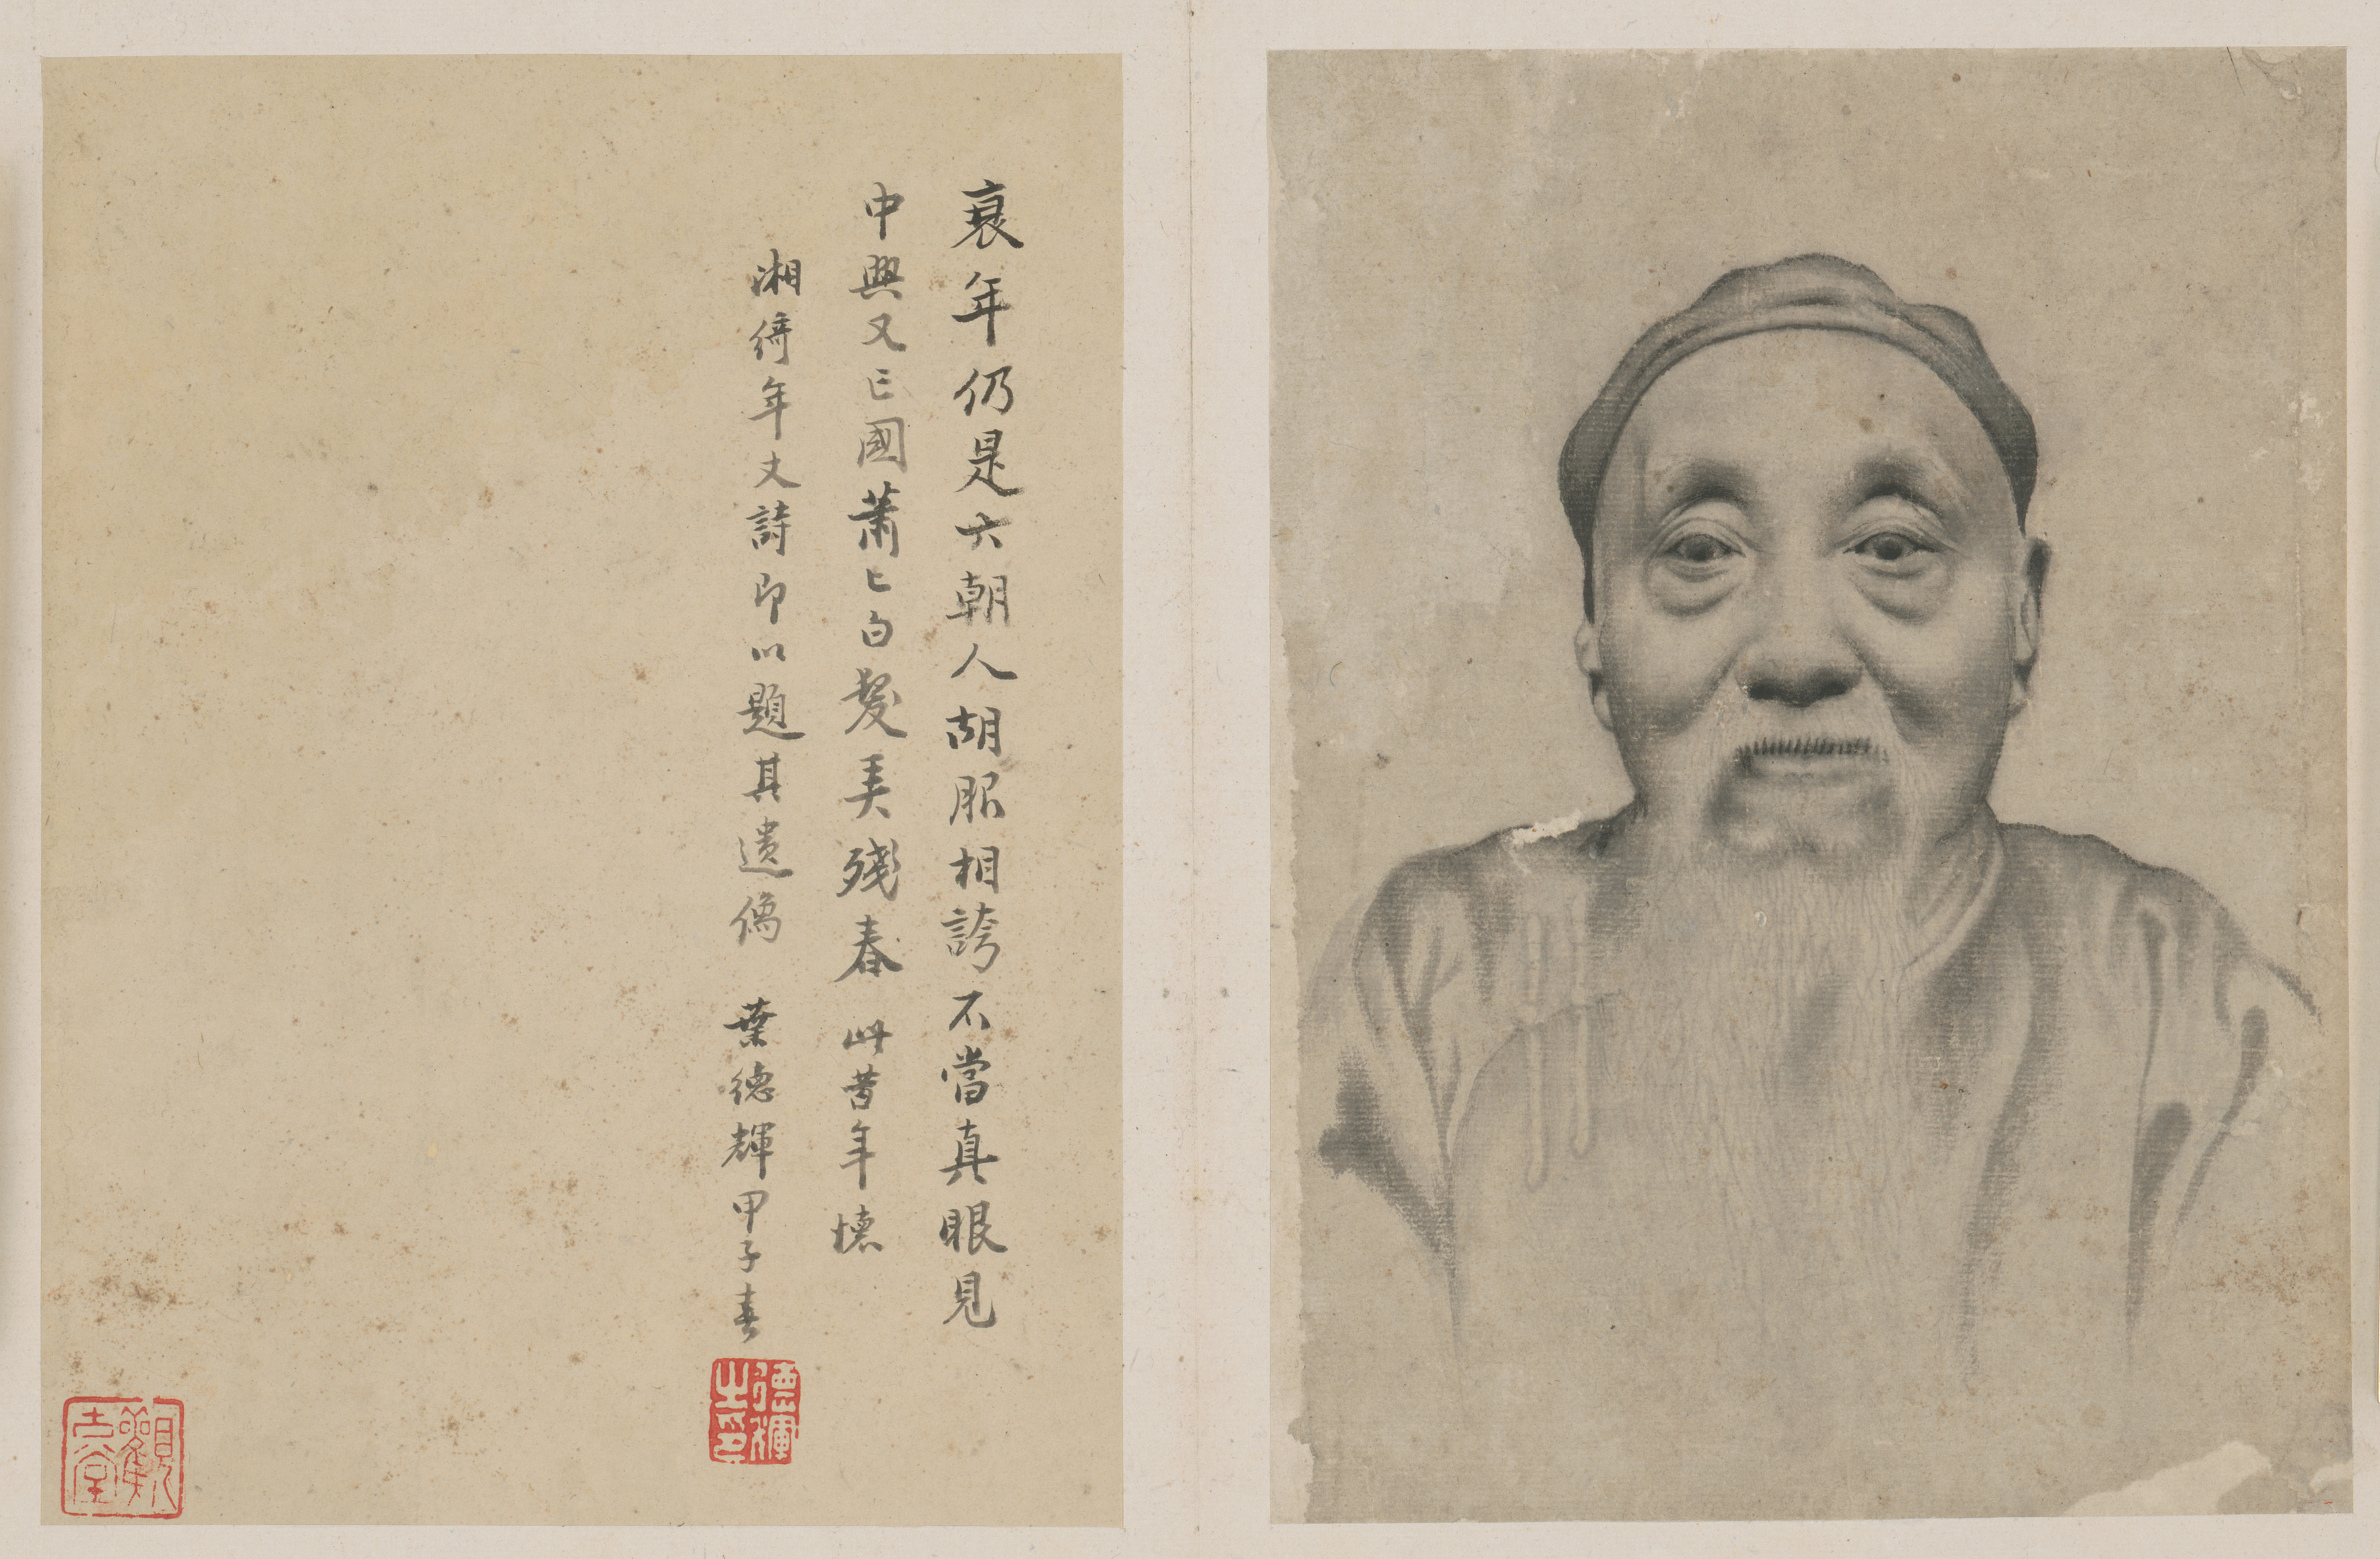 衰年仍是六朝人胡服相誇不當真眼見
中興又亡國蕭〻白髮美殘春此昔年懷
湘綺年丈詩即以題其遺像 葉德輝甲子春
德輝之印
觀古堂